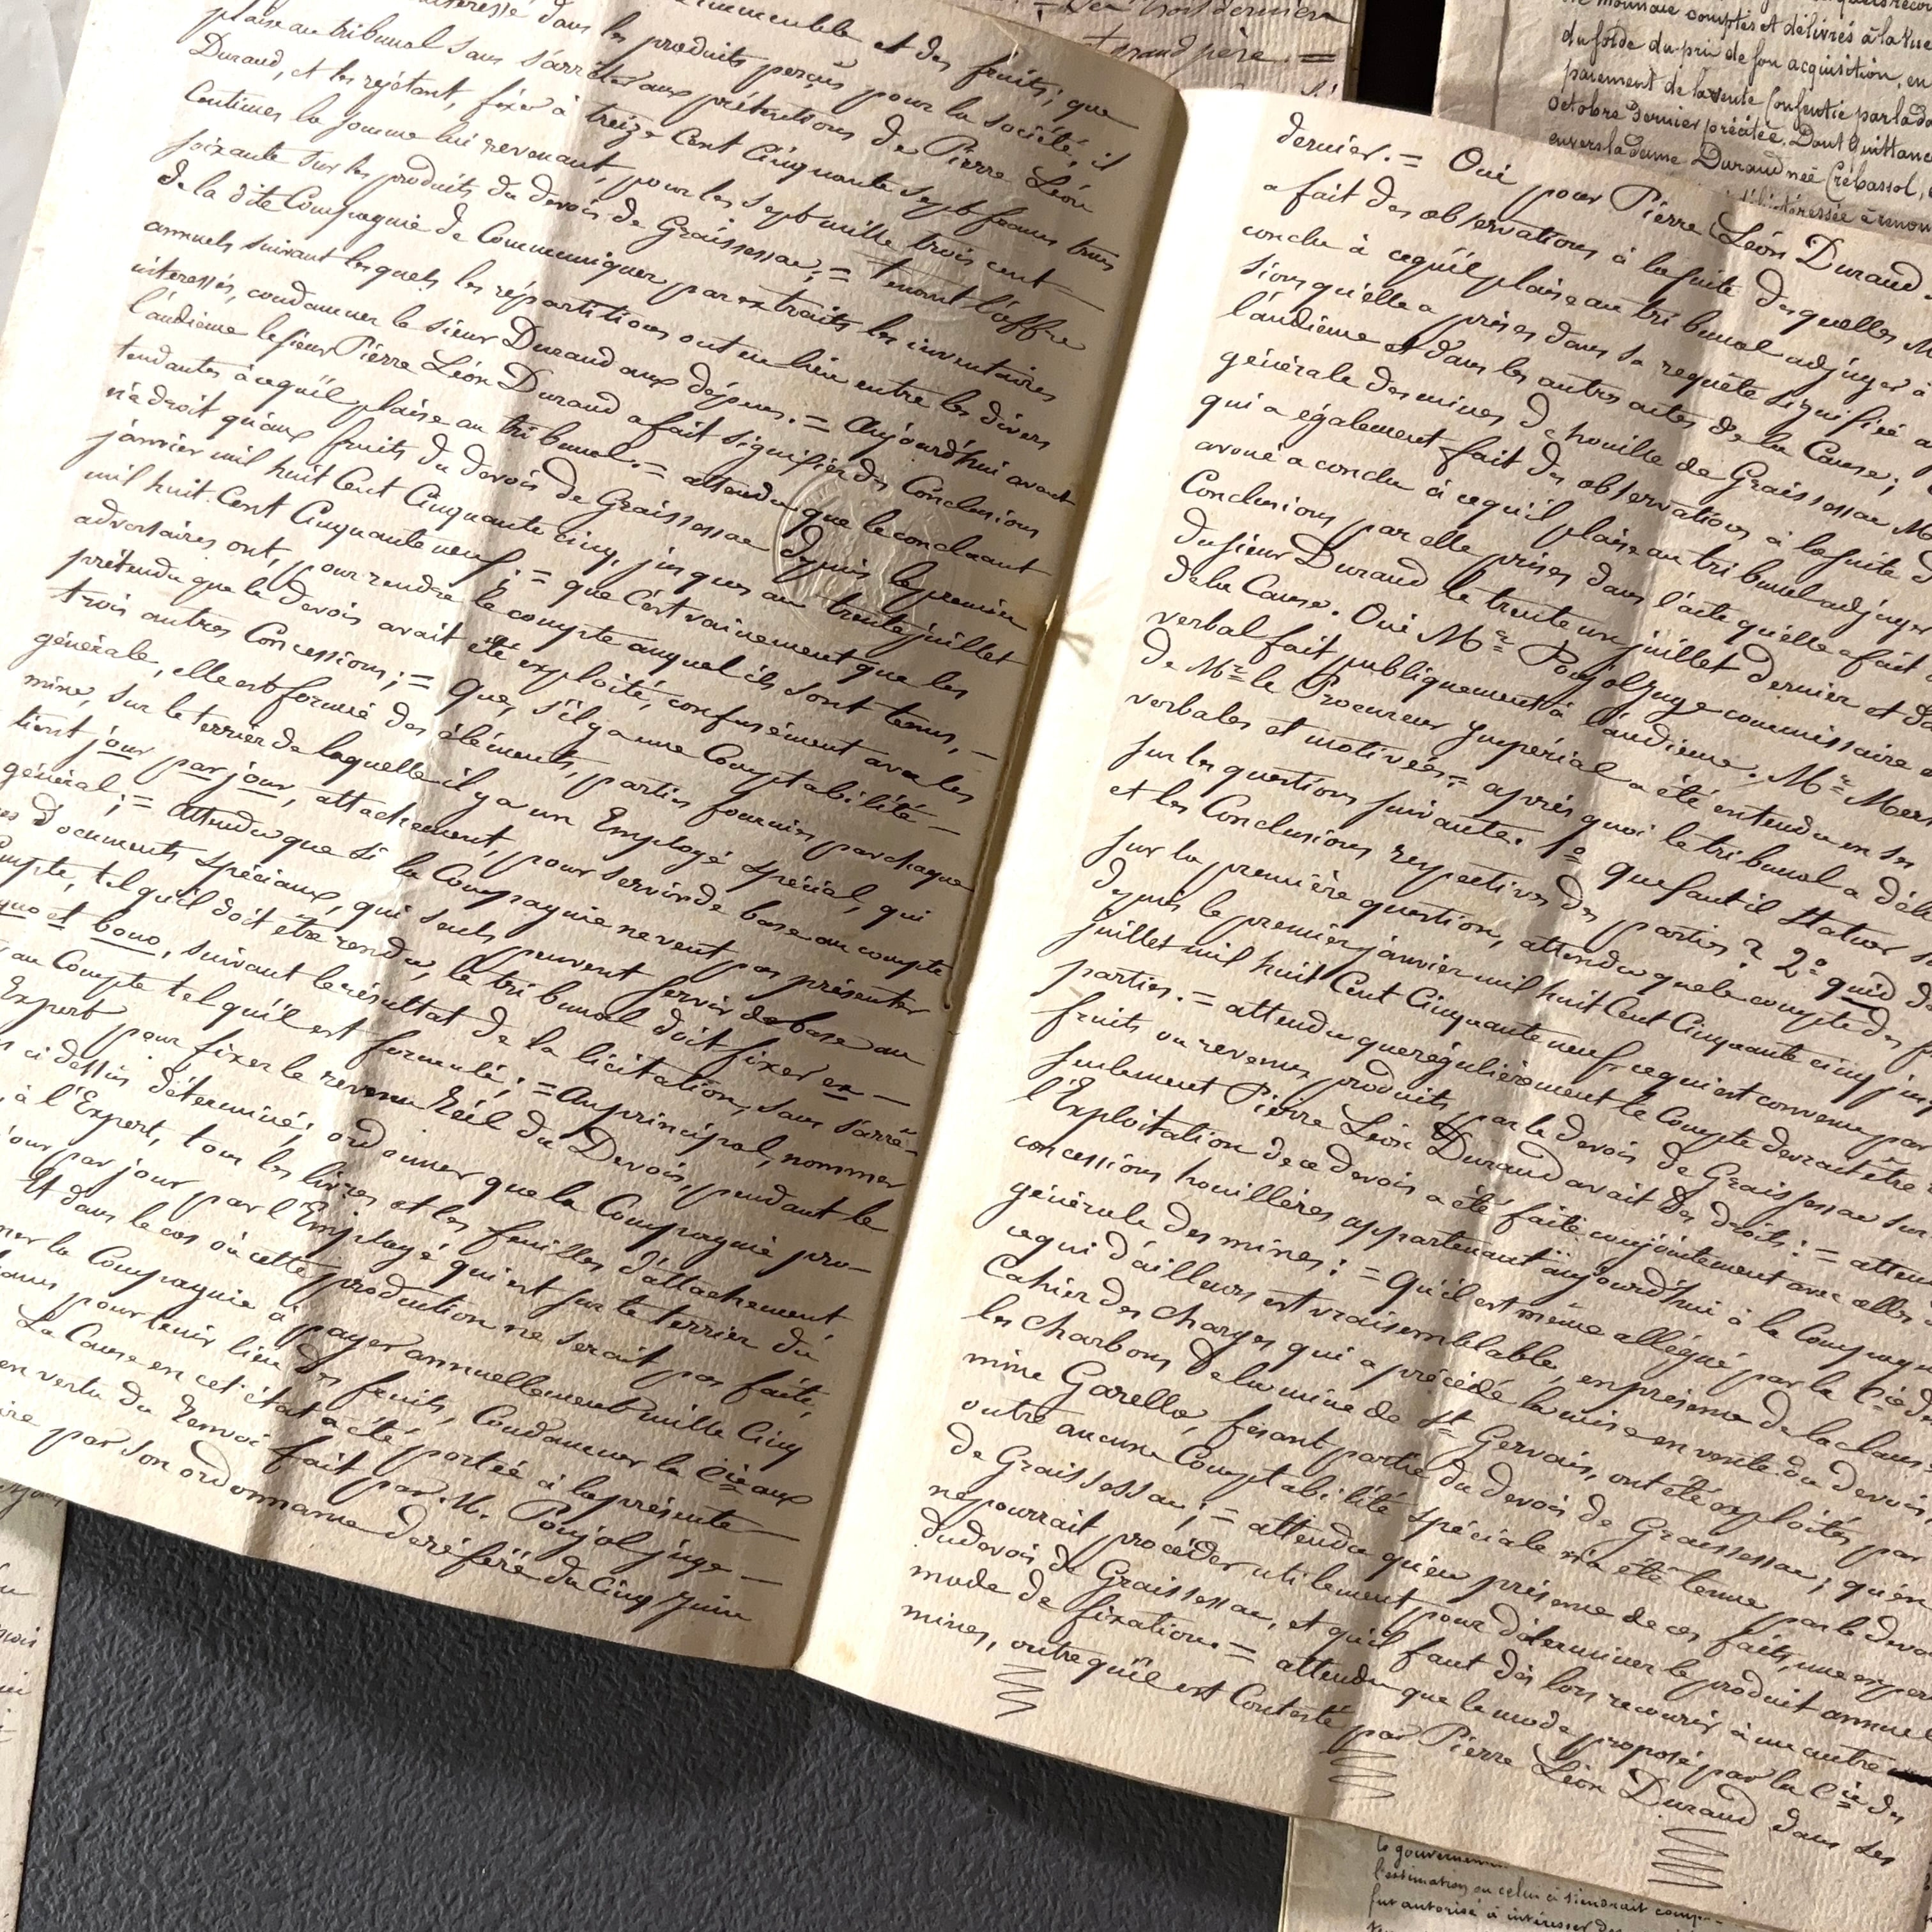 intéressé dans l'immeuble et des fruits; que
dans les produits perçus pour la société, il
plaise au tribunal sans s'arrêter aux prétentions de Pierre Léon
Durand, et les rejétant, fixer à treize Cent Cinquante sept francs trois
Centimes la somme lui revenant, pour les sept mille trois cent
soixante sur les produits du devois de Graissessac; = tenant l'offre
de la dite Compagnie de Communiquer par extraits les inventaires
annuels suivant lesquels les répartitions ont eu lieu entre les divers
intéressés, condamner le sieur Durand aux dépens. = Aujourd'hui avant
l'audience le sieur Pierre Léon Durand a fait signifier des Conclusions
tendantes à cequ'il plaise au tribunal. = attendu que le concluant
n'a droit qu'aux fruits du devois de Graissessac depuis le premier
janvier mil huit Cent Cinquante cinq, jusques au trente juillet
mil huit Cent Cinquante neuf; = que C'est vainement que les
adversaires ont, pour rendre le compte auquel ils sont tenus, —
prétendu que le devois avait été exploité, confusément avec les
trois autres Concessions; = Que, s'il y a une Comptabilité —
générale, elle est formée des éléments, partis fournis par chaque
mine, sur le terrier de laquelle il y a un Employé spécial, qui
tient jour par jour, attachement, pour servir de base au compte
général; = attendu que si la Compagnie ne veut pas présenter
documents spéciaux, qui seuls peuvent servir de base au
Compte, tel qu'il doit être rendu, le tribunal doit fixer ex —
quo et bono, suivant le résultat de la licitation, sans s'arrê-
au Compte tel qu'il est formulé; = Au principal, nommer
Expert pour fixer le revenu Réél du Devois, pendant le
ci dessus déterminé; ordonner que la Compagnie pro-
à l'Expert, tous les livres et les feuilles d'attachement
jour par jour par l'Employé qui est sur le terrier du
Et dans le cas où cette production ne serait pas faite,
la Compagnie à payer annuellement mille Cinq
pour tenir lieu des fruits, Condamner la Cie aux
La Cause en cet état a été portée à la présente —
en vertu du Renvoi fait par M. Poujol juge —
par son ordonnance de référé du Cinq Juin
dernier. = Oui pour Pierre Léon Durand
a fait des observations à la suite desquelles M
conclu à cequ'il plaise au tribunal adjuger
sions qu'elle a prises dans sa requête signifiée
l'audience et dans les autres actes de la Cause;
générale des mines de houille de Graissessac M
qui a également fait des observations à la suite
avoué a conclu à cequ'il plaise au tribunal adjuger
Conclusions par elle prises dans l'acte qu'elle a fait
du sieur Durand le trente un juillet dernier et
de la Cause. Oui Mr Poujol Juge commissaire
verbal fait publiquement à l'audience. Mr
de Mr le Procureur Impérial a été entendu en ses
verbales et motivées = après quoi le tribunal a
sur les questions suivantes. 1º que faut il statuer
et les Conclusions respectives des parties? 2º quid
sur la première question, attendu que le compte des
depuis le premier janvier mil huit Cent Cinquante cinq
juillet mil huit Cent Cinquante neuf cequi est convenu
parties. = attendu que régulièrement le Compte devrait être
fruits ou revenus produits par le devois de Graissessac
seulement Pierre Léon Durand avait des droits: =
l'Exploitation de ce devois a été faite conjointement avec
concessions houillères appartenant aujourd'hui à la Compagnie
générale des mines: = Qu'il est même allégué par la Cie
cequi d'ailleurs est vraisemblable, en présence de la
Cahier des charges qui a précédé la mise en vente du devois
les charbons de la mine de St Gervais, ont été exploités par
mine Garella, fesant partie du devois de Graissessac; qu'en
outre aucune Comptabilité spéciale n'a été tenue par le
de Graissessac; = attendu qu'en présence de ces faits, une
ne pourrait procéder utilement pour déterminer le produit annuel
du devois de Graissessac, et qu'il faut dès lors recourir à un autre
mode de fixation. = attendu que le mode proposé par la Cie des
mines, outre qu'il est Contesté par Pierre Léon Durand dans ses
grand père =
comptés et délivrés à la
du solde du prix de son acquisition, en
paiement de la vente consentie par
octobre dernier précitée. Dont quittance
envers la dame Durand née Crébassol,
l'intéressée à
le
l'estimation ou celui ci viendrait
fut autorisé à intéresser